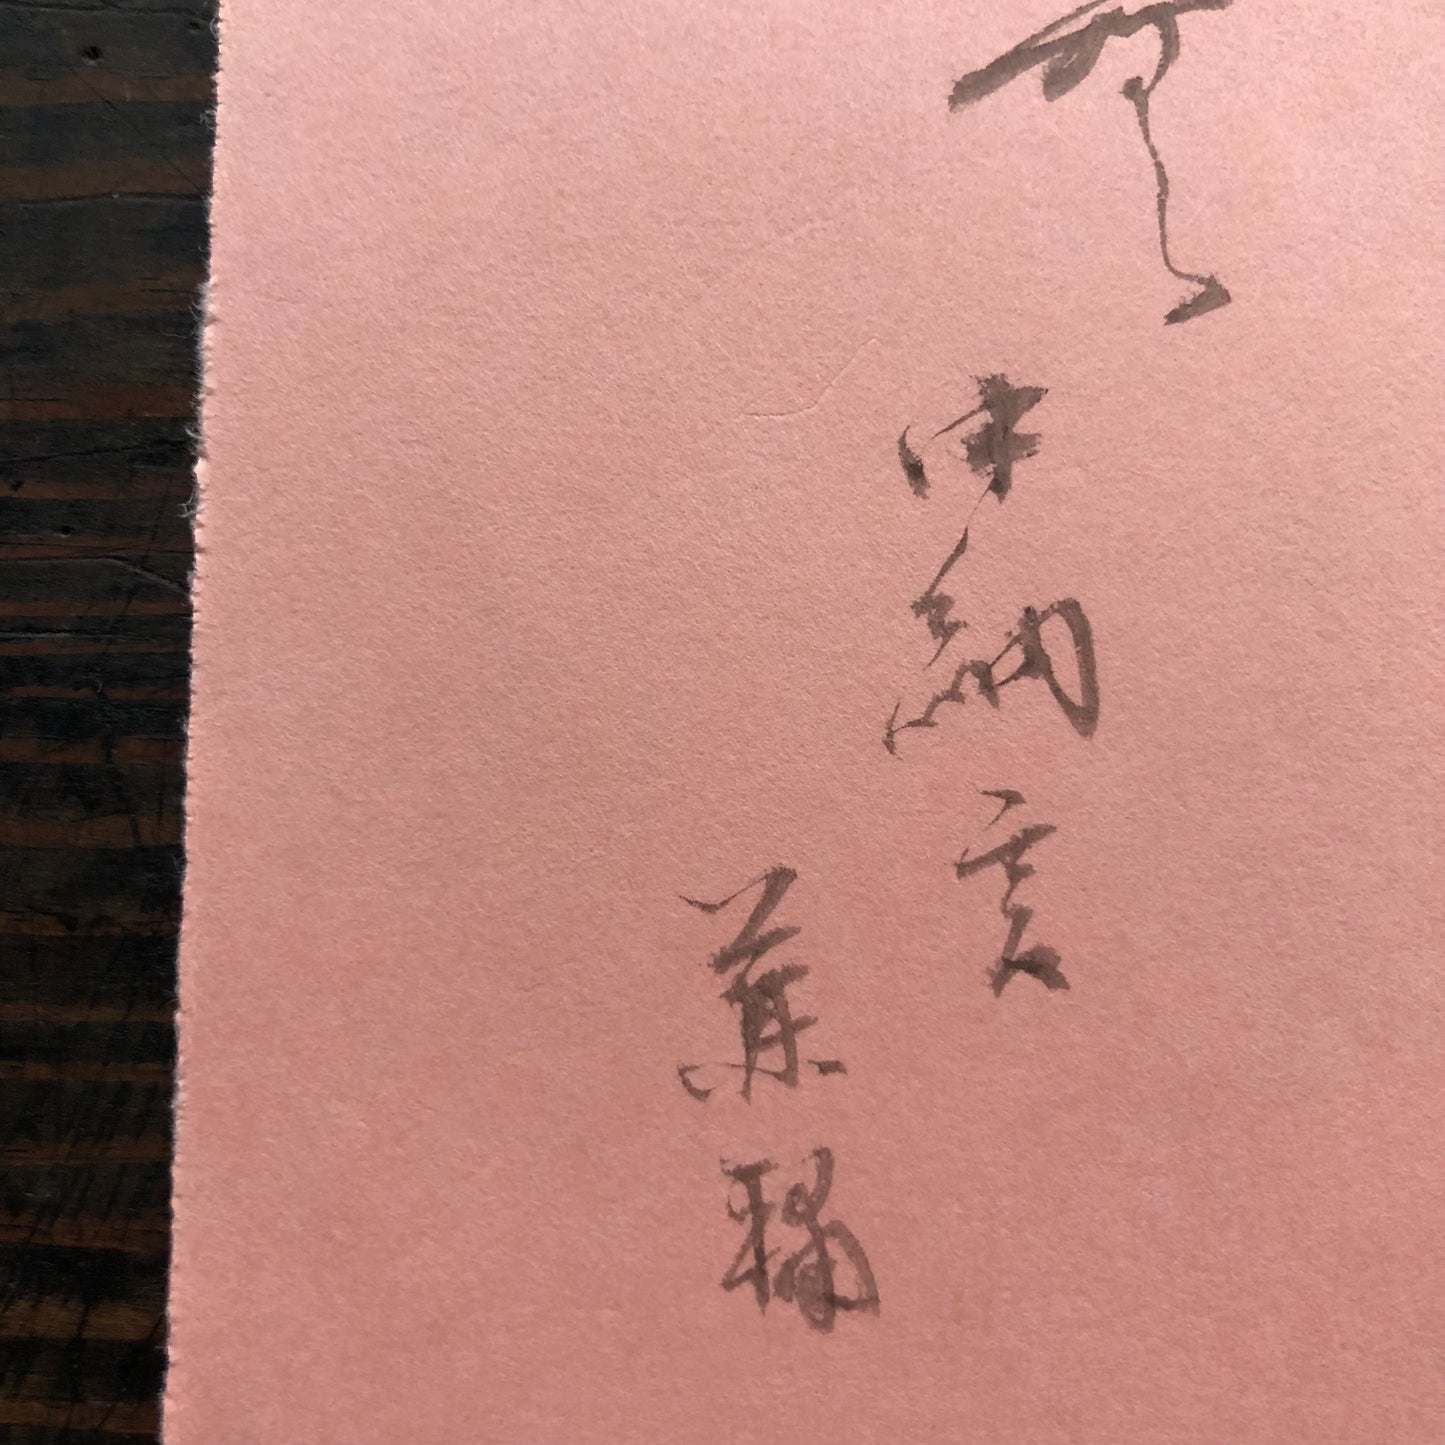 中納言
兼輔